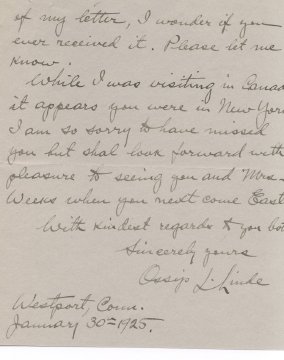 of my letter, I wonder if you
ever received it. Please let me
know.
While I was visiting in Canad
it appears you were in New York
I am so sorry to have missed
you but shal look forward with
pleasure to seeing you and Mrs.
Weeks when you next come East
With kindest regards to you bot
Sincerely yours
Ossip L. Linde
Westport, Conn.
January 30= 1925.